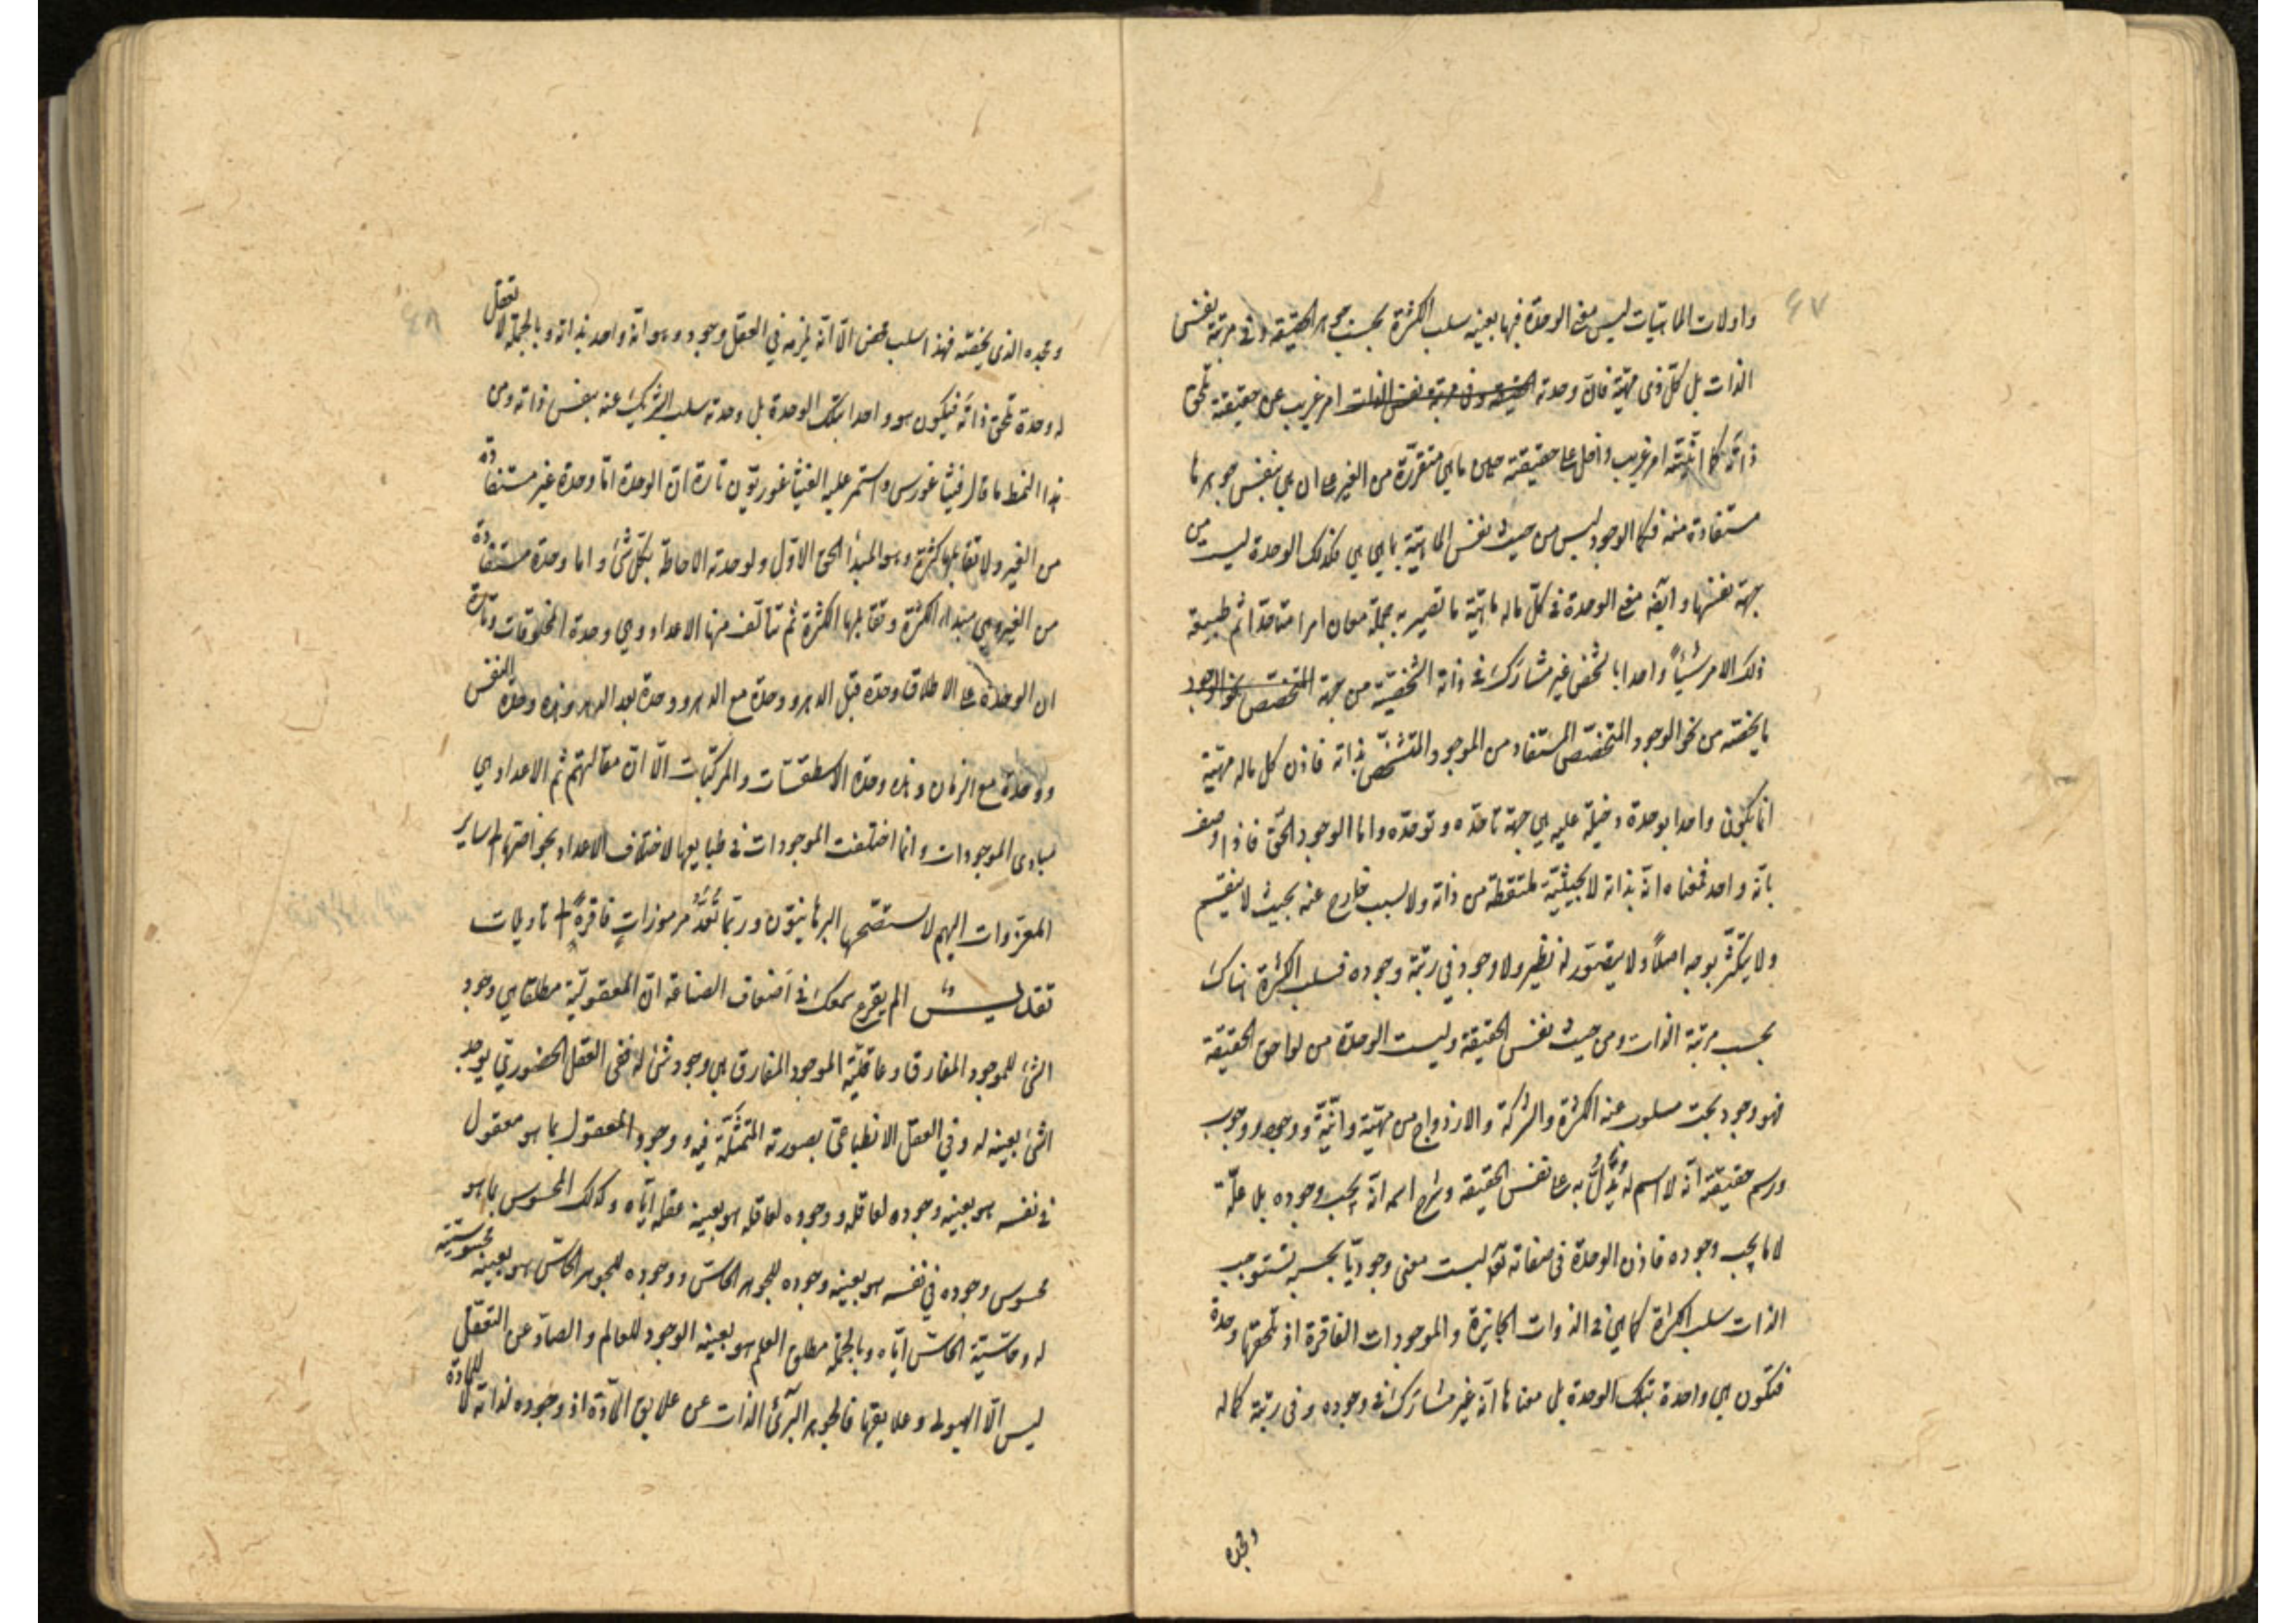 ٤٧
واولات الماهيّات ليس معنى الوحدة فيها بعينه سلب الكثرة بحسب جوهر الحقيقة وفى مرتبة نفس
الذات بل كلّ ذى مهيّة فانّ وحدته الحقيقة وفى مرتبة نفس الذات امر غريب عن حقيقته تلحق
ذاته كما انّيّته امر غريب داخل على حقيقته حين ما هى متقرّرة من الغير على ان هى بنفس جوهرها
مستفادة منه فكما الوجود ليس من حيث نفس الماهيّة بما هى هى فكذلك الوحدة ليست من
جهة نفسها وايضا معنى الوحدة فى كلّ ما له ماهيّة ما تصير به جملة معان امرا متاحدا ثم طبيعة
ذلك الامر شيئاً واحدا بالشخص غير مشارَك فى ذاته الشخصيّة من جهة المتخصّص بنحو الوجود
ما يخصّه من نحو الوجود المتخصّص المستفاد من الموجود المتشخّص بذاته فاذن كل ما له مهيّة
انما يكون واحدا بوحدة دخيلة عليه هى جهة تاحّده وتوحّده واما الوجود الحقّ فاذا وصف
بانّه واحد فمعناه انّه بذاته لا بحيثيّة ملتقطة من ذاته ولا بسبب خارج عنه بحيث لا ينقسم
ولا يتكثّر بوجه اصلاً ولا يتصوّر له نظير ولا وجود فى رتبة وجوده فسلب الكثرة هناك
بحسب مرتبة الذات ومن حيث نفس الحقيقة وليست الوحدة من لواحق الحقيقة
فهو وجود بحت مسلوب عنه الكثرة والشركة والازدواج من مهيّة وانّيّة ووجود ووجوب
ورسم حقيقته انّه لا اسم له يدلّ به على نفس الحقيقة وشرح اسمه انّه يجب وجوده بلا علّة
لا ما يجب وجوده فاذن الوحدة فى صفاته تعه ليست معنى وجوديّا بحسبه تستوجب
الذات سلب الكثرة كما هى فى الذوات الجايزة والموجودات الفاقرة اذ تلحقها وحدة
فتكون هى واحدة بتلك الوحدة بل معناها انّه غير مشارَك فى وجوده وفى رتبة كماله
ومجده
٤٨
ومجده الذى يخصّه فهذا سلب محض الّا انّه يلزمه فى العقل وجود وهو انّه واحد بذاته وبالجملة لا تعقل
له وحدة تلحق ذاته فيكون هو واحدا بتلك الوحدة بل وحدته سلب الشريك عنه بنفس ذاته ومن
هذا النمط ما قال فيثاغورس واستمر عليه الفيثاغوريّون تارة انّ الوحدة امّا وحدة غير مستفادة
من الغير ولا تقابلها كثرة وهو المبدأ الحق الاوّل ولوحدته الاحاطة بكلّ شئ واما وحدة مستفادة
من الغير وهى مبدء الكثرة وتقابلها الكثرة ثم تتألّف منها الاعداد وهى وحدة المخلوقات وتارة
ان الوحدة على الاطلاق وحدة قبل الدهر ووحدة مع الدهر ووحدة بعد الدهر وهذه وحدة النفس
ووحدة مع الزمان وهذه وحدة الاسطقسّات والمركّبات الّا انّ مقالتهم ثم الاعداد هى
مبادى الموجودات وانما اختلفت الموجودات فى طبايعها لاختلاف الاعداد بخواصّها + ساير
المعزوات اليهم لا يستصحّها البرهانيّون وربّما تُعَدُّ مرموزاتٍ فاقرةً + تاويلات
تقديس الم يقرع سمعك فى اضعاف الصناعة انّ المعقوليّة مطلقا هى وجود
الشئ للموجود المفارق وعاقليّة الموجود المفارق هى وجود شئ له ففى العقل الحضورىّ يوجد
الشئ بعينه له وفى العقل الانطباعىّ بصورته المتمثّلة فيه ووجود المعقول بما هو معقول
فى نفسه هو بعينه وجوده لعاقله ووجوده لعاقله هو بعينه عقله ايّاه وكذلك المحسوس بما هو
محسوس وجوده فى نفسه هو بعينه وجوده للجوهر الحاسّ ووجوده للجوهر الحاسّ هو بعينه محسوسيّته
له وحاسّيّة الحاسّ ايّاه وبالجملة مطلق العلم هو بعينه الوجود للعالم والصادّ عن التعقّل
ليس الّا الهيولى وعلايقها فالجوهر البرئ الذات عن علايق المادّة اذ وجوده لذاته لا للمادة